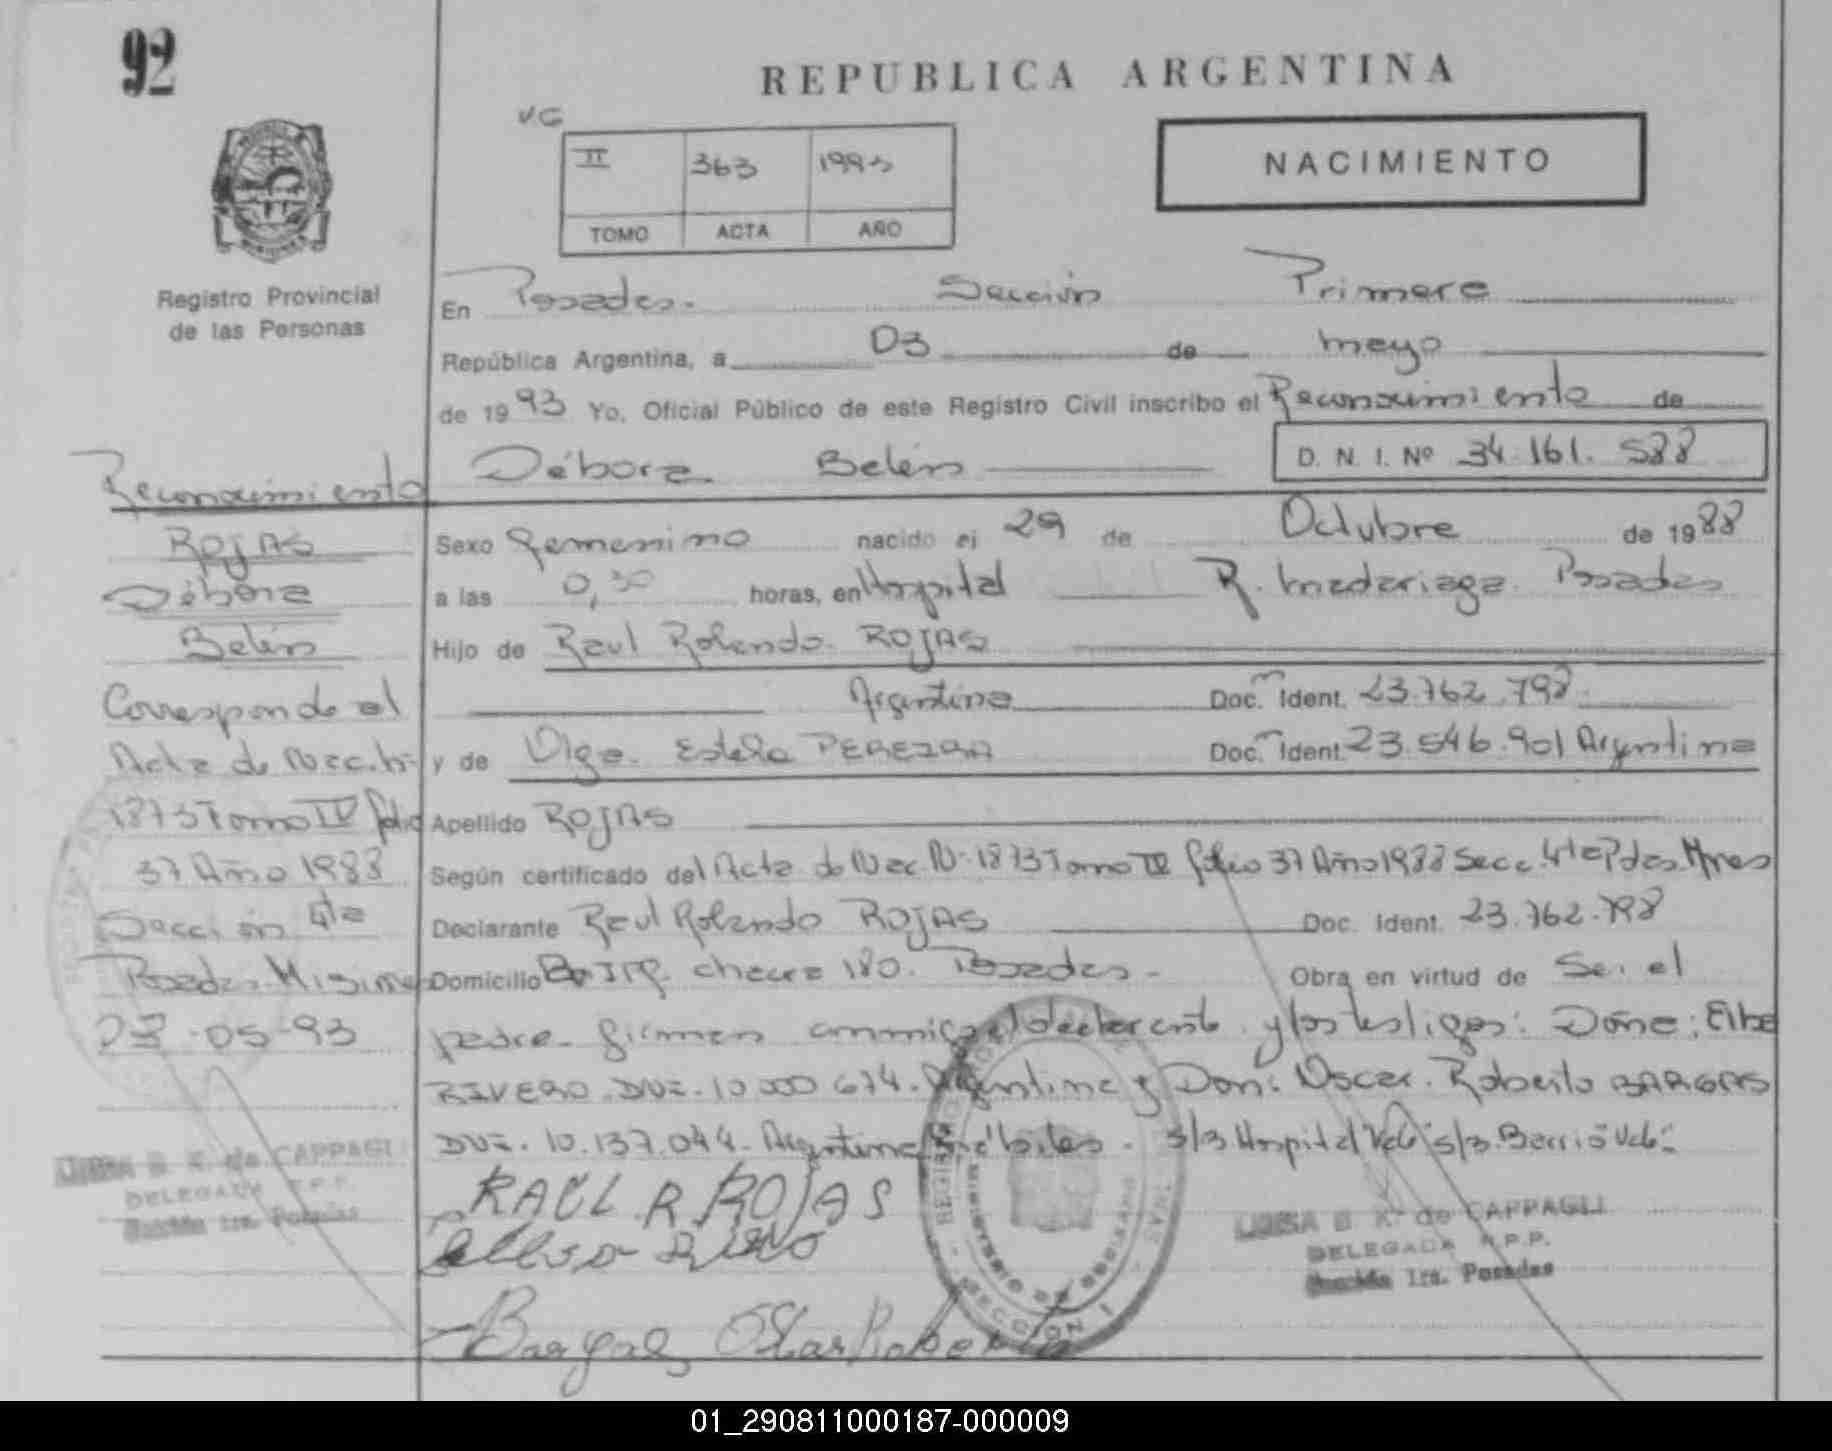 92
REPUBLICA ARGENTINA
VG
II 363 1993
TOMO ACTA AÑO
NACIMIENTO
Registro Provincial
de las Personas
En Posadas. Sección Primera
República Argentina, a 03 de mayo
de 1993 Yo, Oficial Público de este Registro Civil inscribo el Reconocimiento de
Débora Belén D. N. I. Nº 34.161.588
Sexo femenino nacido el 29 de Octubre de 1988
a las 0,30 horas, en Hospital R. Madariaga. Posadas
Hijo de Raul Rolando ROJAS
Argentino Doc. Ident. 23.762.798
y de Olga Estela PEREIRA Doc. Ident. 23.546.901 Argentina
Apellido ROJAS
Según certificado del Acta de Nac. Nº 1873 Tomo IV folio 37 Año 1988 Secc. 4ta Pdas. Mnes
Declarante Raul Rolando ROJAS Doc. Ident. 23.762.798
Domicilio chacra 180. Posadas. Obra en virtud de Ser el
padre. firman conmigo el declarante y los testigos: Doña: Elba
RIVERO. DNI. 10.000.674. Argentina y Don: Oscar Roberto BARGAS
DNI. 10.137.044. Argentina hábiles. s/3 Hospital Vale s/3. Barrio Vale
RAUL R ROJAS
Bargas Oscar Roberto
Reconocimiento
ROJAS
Débora
Belén
Corresponde al
Acta de Nac. Nº
1873 Tomo IV folio
37 Año 1988
Sección 4ta
Posadas. Misiones
03-05-93
LUISA B. K. de CAPPAGLI
DELEGADA R.P.P.
Sección 1ra. Posadas
LUISA B. K. de CAPPAGLI
DELEGADA R.P.P.
Sección 1ra. Posadas
MINISTERIO DE GOBIERNO
SECCION 1
01_290811000187-000009